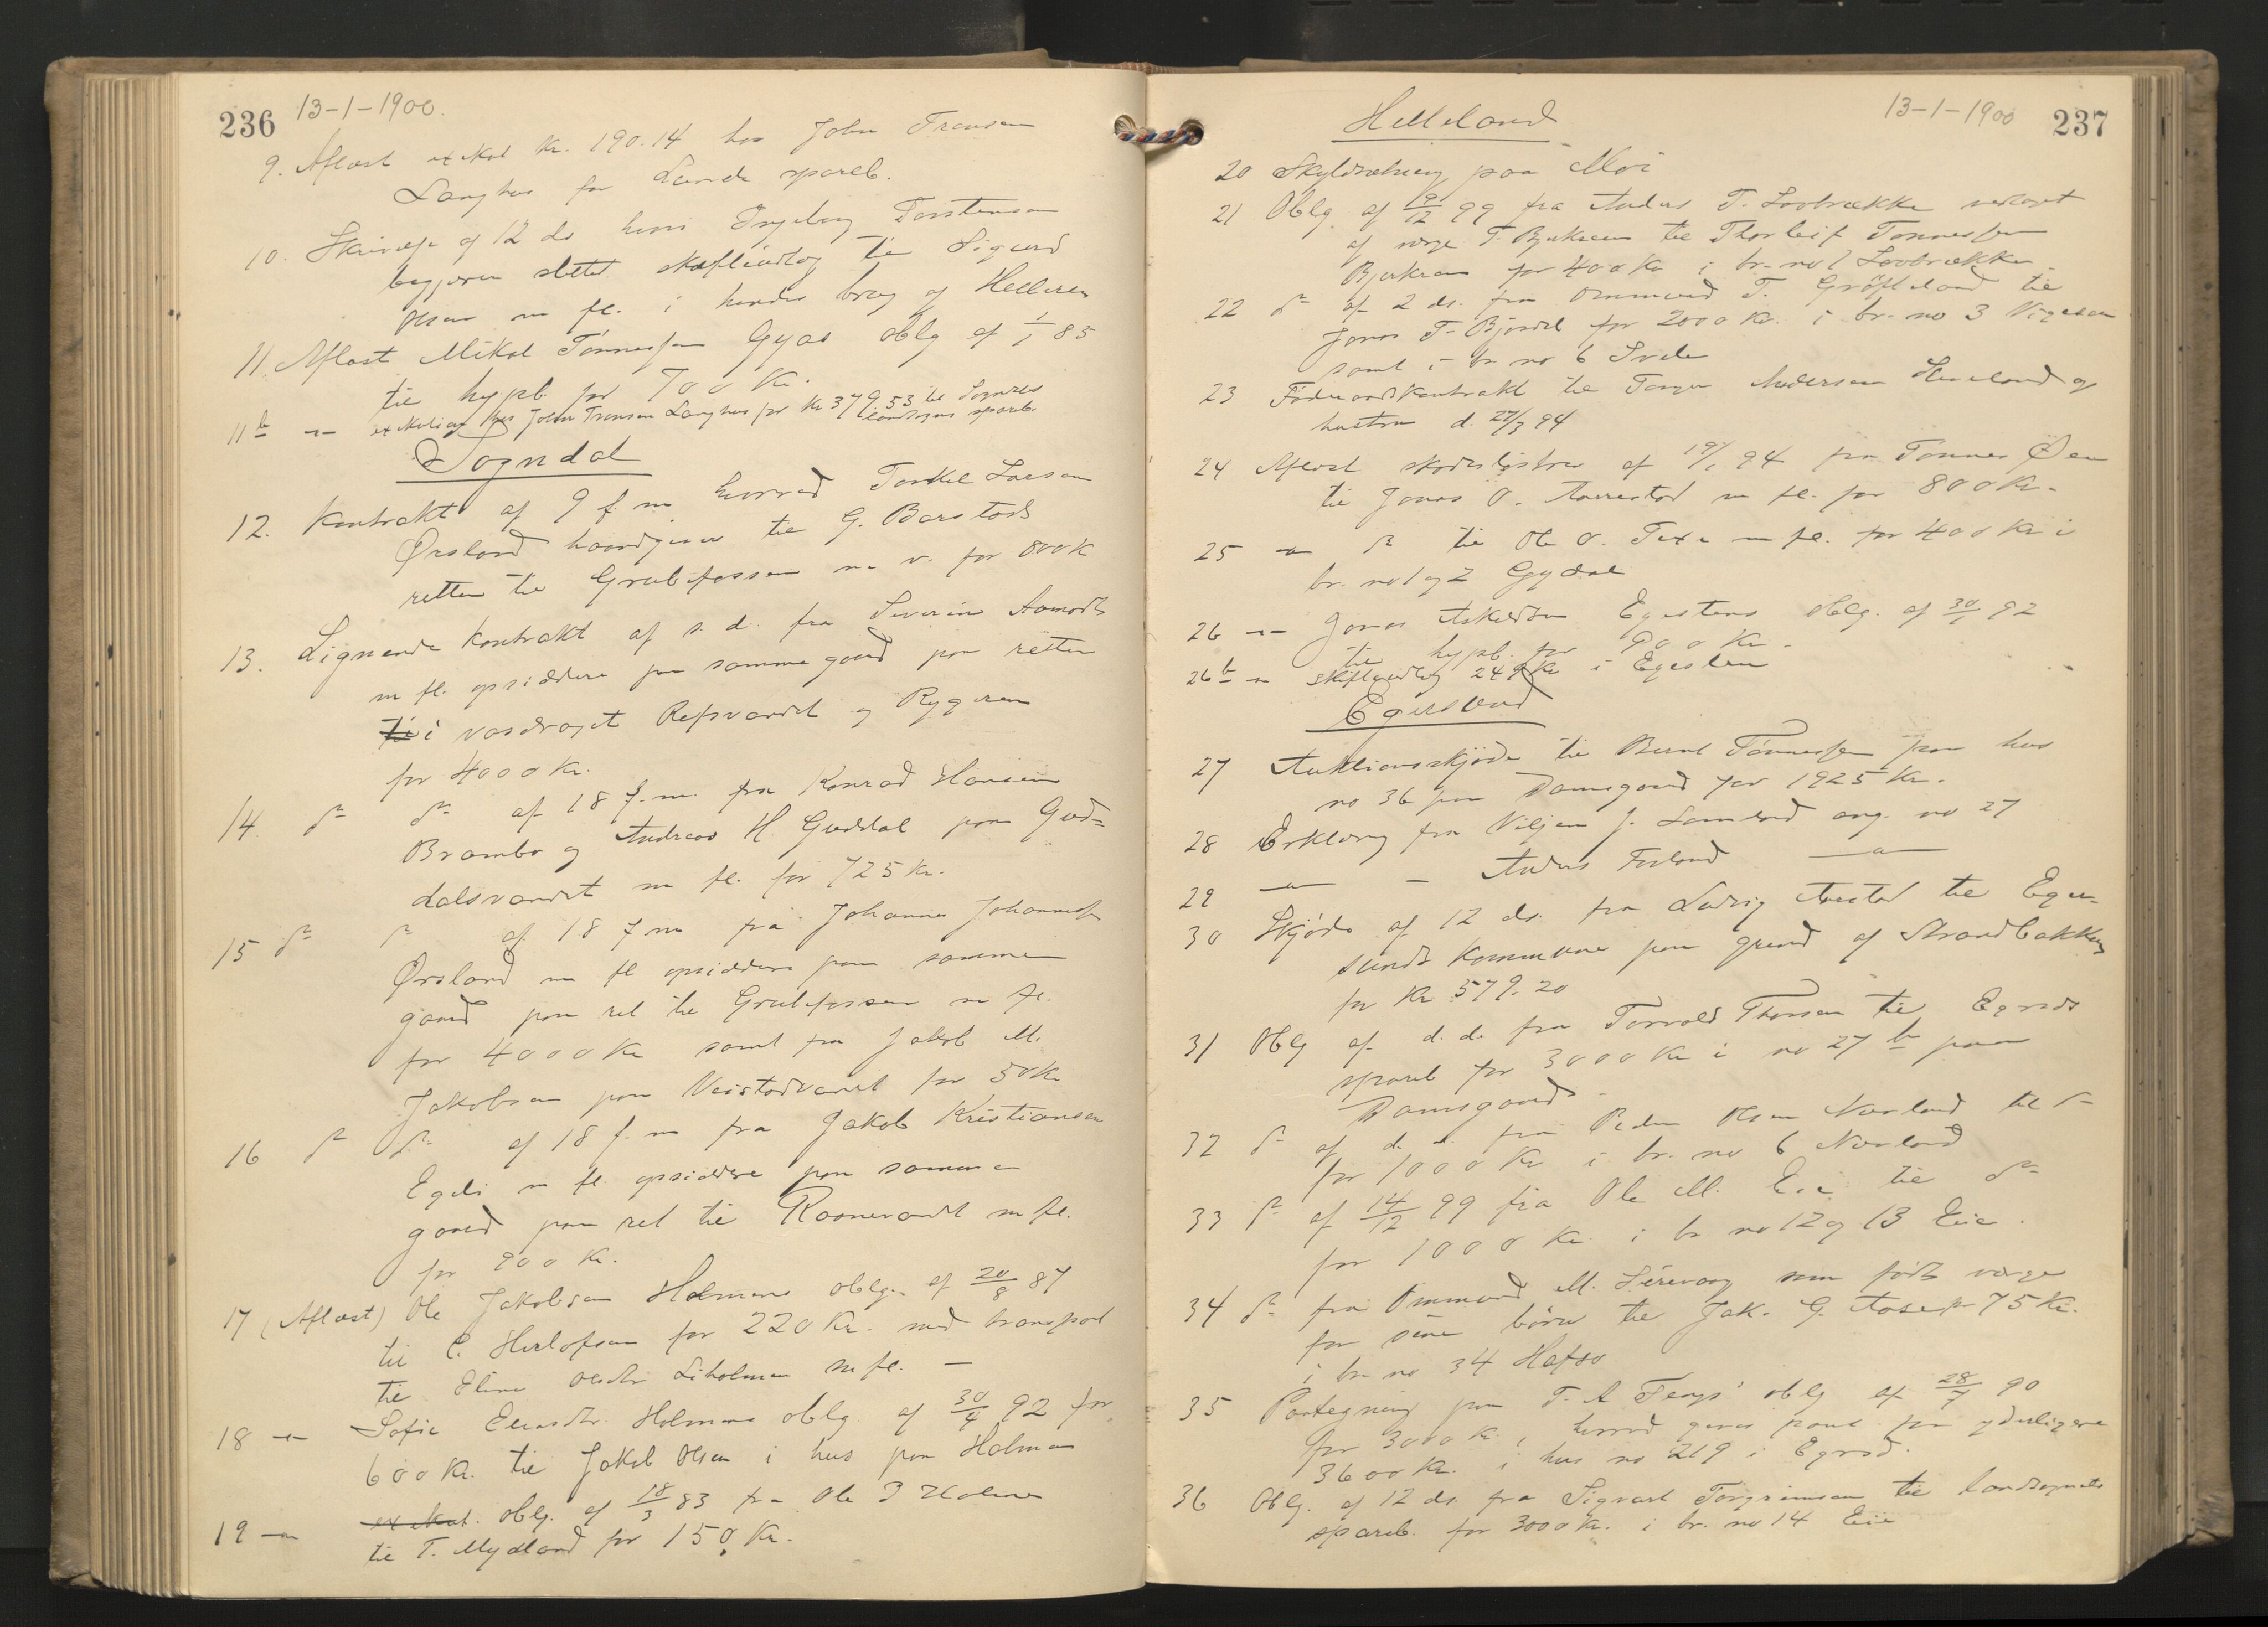 236 13-1-1900.
9. Aflæst exekut Kr. 190.14 hos John Tronsen
Langhus for Lunde spareb.
10. Skrivelse af 12 ds hvori Ingeborg Torstensen
begjærer slettet skifteudlæg til Sigurd
Olsen m fl. i hendes brug af Helleren
11. Aflæst Mikal Tønnessen Gyas oblg af 1/1 85
til hypb. for 700 Kr.
11b -"- exekution hos John Tronsen Langhus for Kr 379.53 til Sogndals
landsogns spareb.
Sogndal
12. Kontrakt af 9 f.m hvorved Torkel Larsen
Ørsland haandgiver til G. Barstad
retten til Grubefossen m. v. for 800 K
13. Lignende kontrakt af s. d. fra Severin Aamodt
m fl. opsiddere paa samme gaard paa retten
til i vasdraget Refsvandet og Rygeren
for 4000 Kr.
14. do do af 18 f.m. fra Konrad Hansen
Brambo og Andreas H. Guddal paa Gud=
dalsvandet m fl. for 725 Kr.
15 do do af 18 f m fra Johannes Johannessen
Ørsland m fl opsiddere paa samme
gaard paa ret til Grubefossen m fl.
for 4000 Kr samt fra Jakob M.
Jakobsen paa Veistadvandet for 50 Kr
16 do do af 18 f. m fra Jakob Kristiansen
Egeli m fl. opsiddere paa samme
gaard paa ret til Raanevandet m fl.
for 900 Kr.
17 (Aflæst) Ole Jakobsen Holmene oblg. af 20/8 87
til C. Herlofsen for 220 Kr. med transport
til Eline Olsdtr Liholmen m fl. -
18 -"- Sofie Eliasdtr. Holmene oblg. af 30/4 92 for
600 Kr. til Jakob Olsen i hus paa Holmen
19 -"- exekut. oblg. af 18/3 83 fra Ole Holmen
til T. Mydland for 150 Kr.
Helleland
13-1-1900 237
20 Skyldsætning paa Moi
21 Oblg. af 9/12 99 fra Anders T. Lovbrække vedtaget
af verge T. Bjerkreim til Thorleif Tønnessen
Bjerkreim for 400 Kr i br. no 2 Lovbrække
22 do af 2 ds. fra Ommund T. Grøfteland til
Jonas T. Bjordal for 2000 Kr. i br. no 3 Vigesaa
samt i br no 6 Svele
23 Føderaadskontrakt til Torger Andersen Haveland og
hustru d. 27/3 94
24 Aflæst skadesløsbrev af 19/1 94 fra Tønnes Øen
til Jonas O. Aarrestad m fl. for 800 Kr.
25 -"- do til Ole O. Texe m fl. for 400 Kr i
br. no 1 og 2 Gydal
26 -"- Jonas Askildsen Egestens oblg. af 30/1 92
til hypb. for 900 Kr.
26b -"- skifteudlæg 249 Kr i Egesten
Egersund
27 Auktionsskjøde til Bernt Tønnessen paa hus
no 36 paa Damsgaard for 1925 Kr.
28 Erklæring fra Viljem J. Lomeland ang. no 27
29 -"- - Anders Forland -"-
30 Skjøde af 12 ds. fra Ludvig Aarstad til Eger-
sunds kommune paa grund af Strandbakken
for Kr 579.20
31 Oblg af d. d. fra Torvald Thorsen til Egrsds
spareb for 3000 Kr i no 27 b paa
Damsgaard.
32 do af d. d. fra Peder Olsen Nærland til do
for 1000 Kr i br. no 6 Nærland
33 do af 14/12 99 fra Ole M. Eie til do
for 1000 Kr. i br no 12 og 13 Eie.
34 do fra Ommund M. Sirevaag som født værge
for sine børn til Jak. G. Aase for 75 Kr.
i br no 34 Hafsø
35 Paategning paa T. A. Tengs' oblg af 28/7 90
for 3000 Kr., hvorved gives pant for yderligere
3600 Kr. i hus no 219 i Egrsd.
36 Oblg. af 12 ds. fra Sigvart Torgrimsen til landsognets
spareb. for 3000 Kr. i br. no 14 Eie